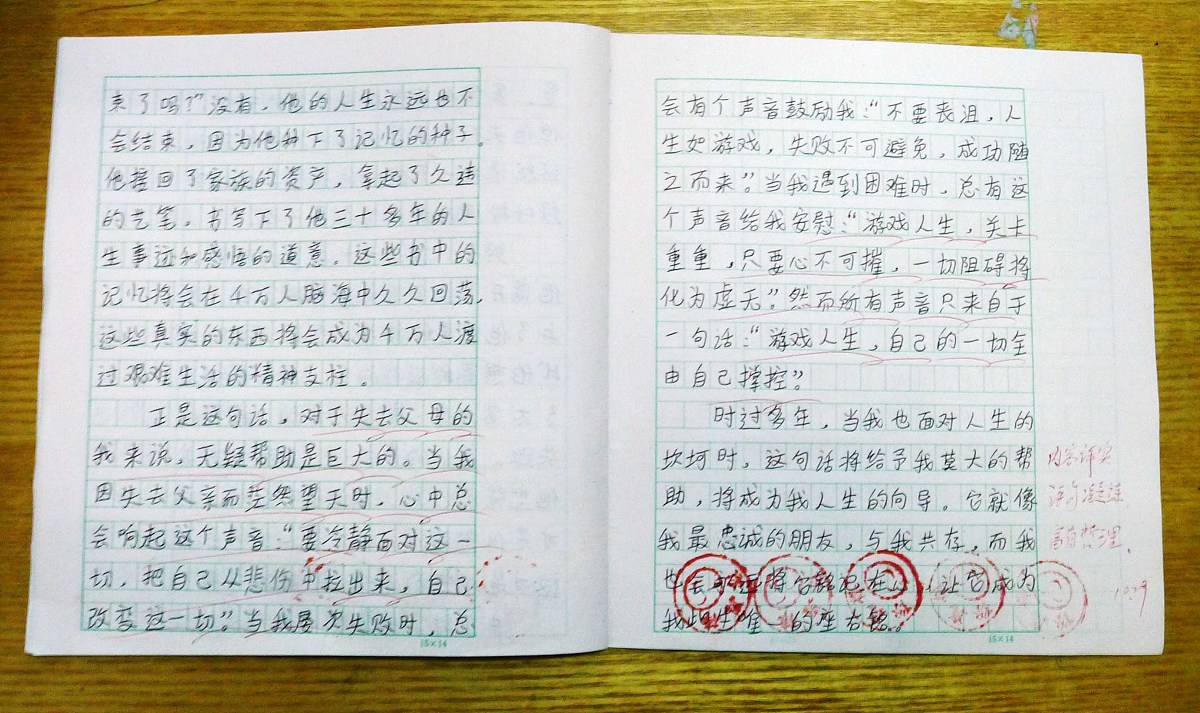 束了吗?”没有，他的人生永远也不
会结束，因为他种下了记忆的种子。
他接回了家族的资产，拿起了久违
的艺笔，书写下了他三十多年的人
生事迹和感悟的道意。这些书中的
记忆将会在千万人脑海中久久回荡。
这些真实的东西将会成为千万人渡
过艰难生活的精神支柱。
正是这句话，对于失去父母的
我来说，无疑帮助是巨大的。当我
因失去父亲而茫然望天时，心中总
会响起这个声音：“要冷静面对这一
切，把自己从悲伤中拉出来，自己
改变这一切”。当我屡次失败时，总
15×14
会有个声音鼓励我：“不要丧沮，人
生如游戏，失败不可避免，成功随
之而来”。当我遇到困难时，总有这
个声音给我安慰：“游戏人生，关卡
重重，只要心不可摧，一切阻碍将
化为虚无”。然而所有声音只来自于
一句话：“游戏人生，自己的一切全
由自己撑控”。
时过多年，当我也面对人生的
坎坷时，这句话将给予我莫大的帮
助，将成为我人生的向导。它就像
我最忠诚的朋友，与我共存。而我
也会永远将它铭记在心，让它成为
我此生唯一的座右铭。
15×14
内容详实
语句凝练
富有哲理。